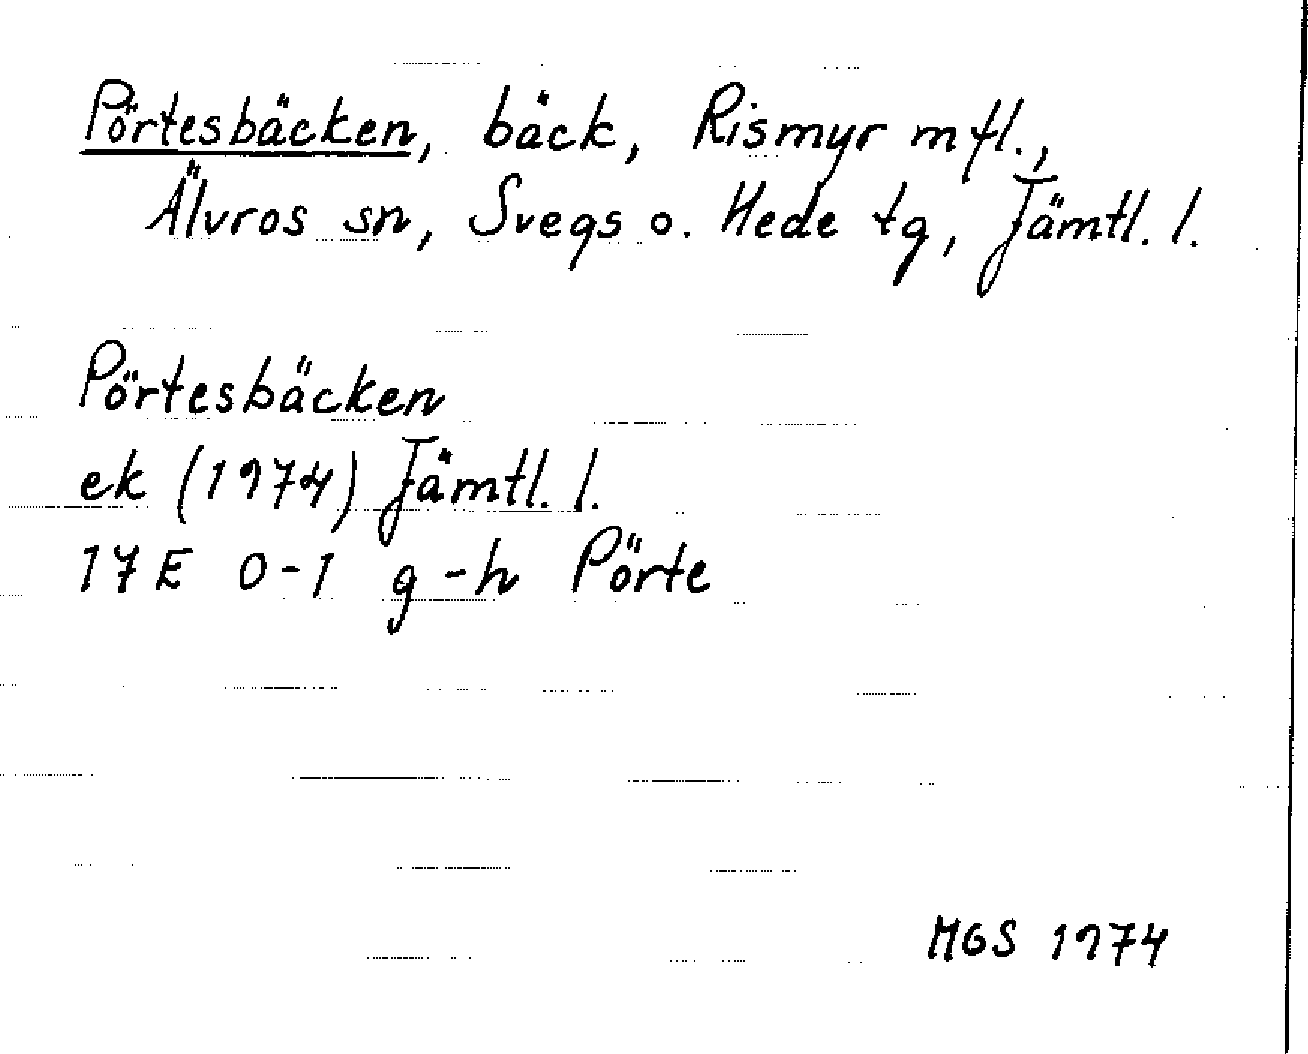 Pörtesbäcken, bäck, Rismyr mfl.,
Älvros sn, Svegs o. Hede tg, Jämtl. l.
Pörtesbäcken
ek (1974) Jämtl. l.
17E 0-1 g-h Pörte
MGS 1974